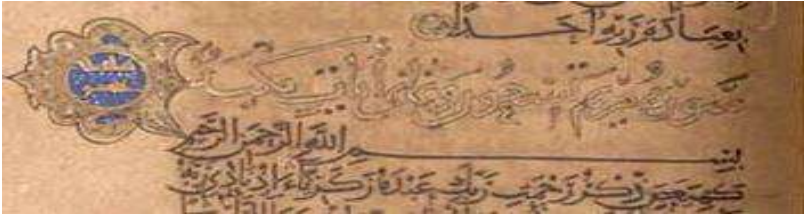 بعبادة ربه أحدا
سورة مريم تسعون وثماني آيات مكية
بسم الله الرحمن الرحيم
كهيعص ذكر رحمت ربك عبده زكرياء إذ نادى ربه